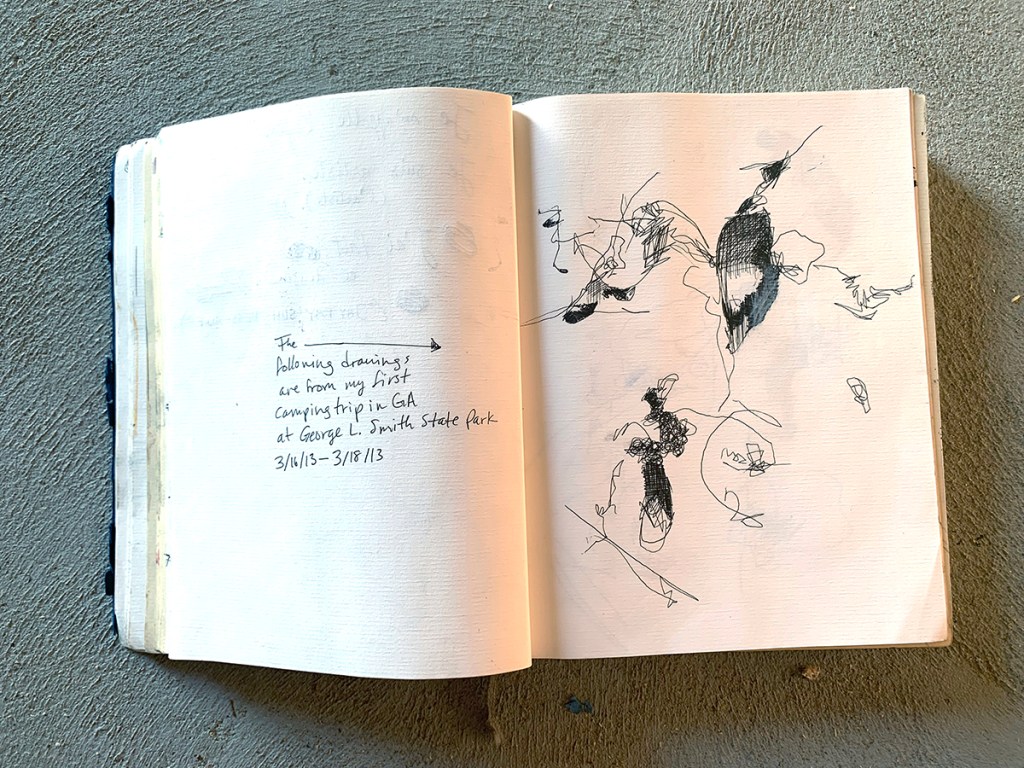 The
following drawings
are from my first
camping trip in GA
at George L. Smith State Park
3/16/13 – 3/18/13